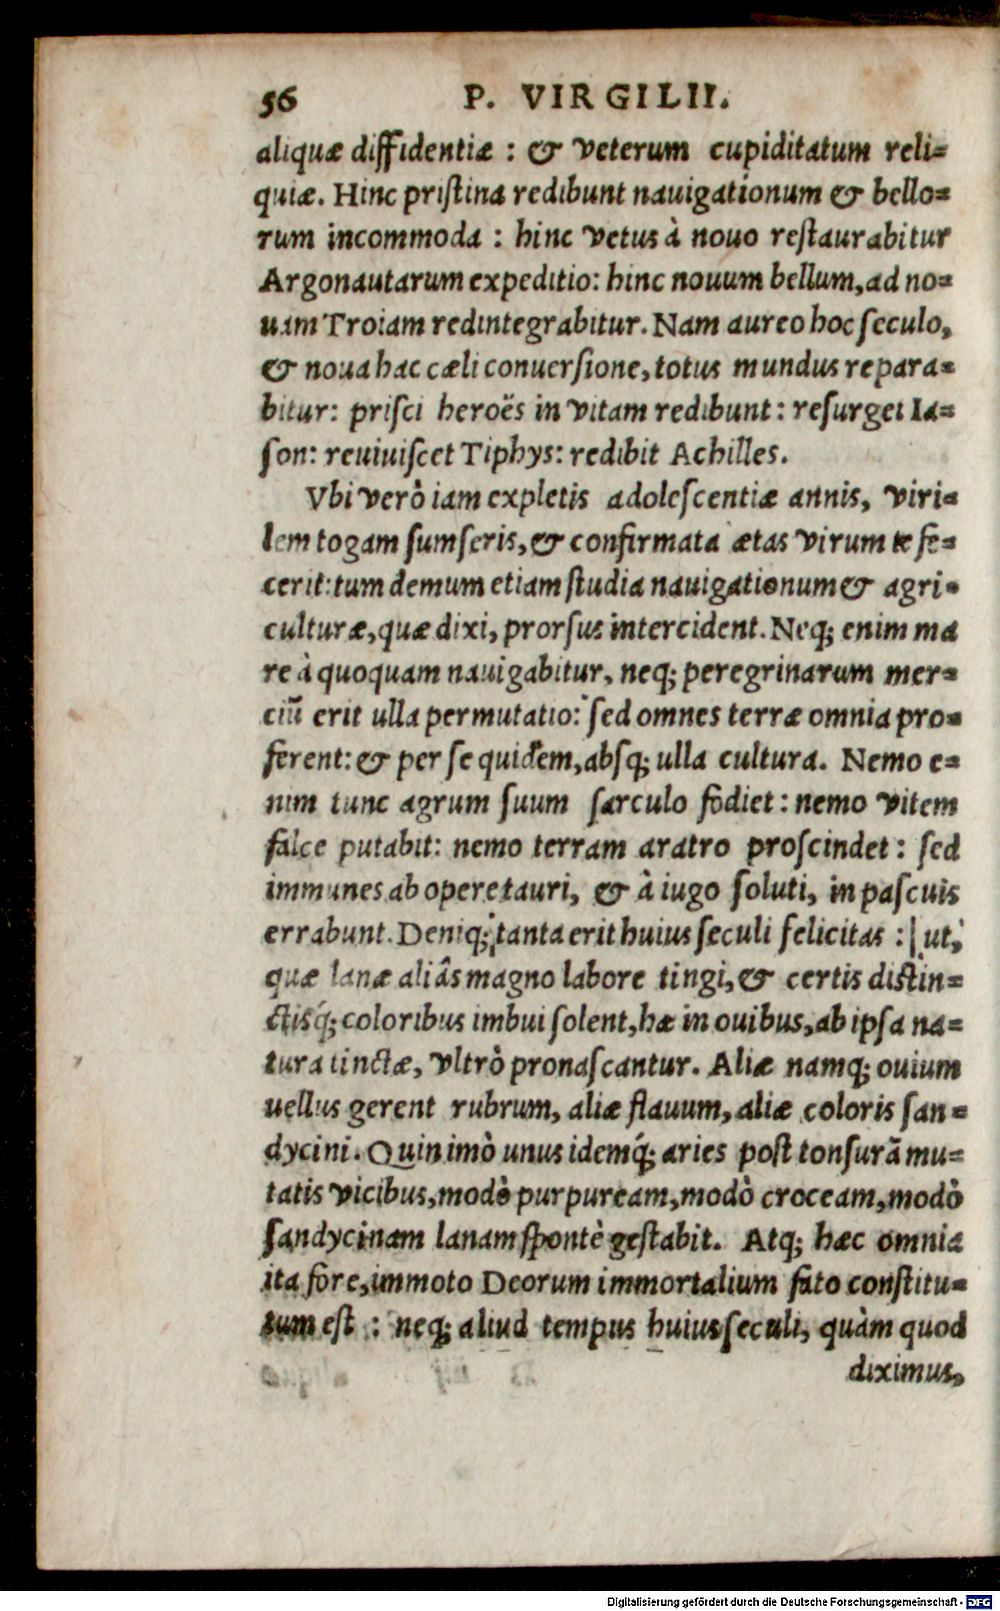 56 P. VIRGILII.
aliquæ diffidentiæ : & veterum cupiditatum reli=
quiæ. Hinc pristina redibunt nauigationum & bello=
rum incommoda : hinc vetus à nouo restaurabitur
Argonautarum expeditio: hinc nouum bellum, ad no=
uam Troiam redintegrabitur. Nam aureo hoc seculo,
& noua hac cæli conuersione, totus mundus repara=
bitur: prisci heroës in vitam redibunt : resurget Ia=
son: reuiuiscet Tiphys: redibit Achilles.
Vbi verò iam expletis adolescentiæ annis, viri=
lem togam sumseris, & confirmata ætas virum te fe=
cerit: tum demum etiam studia nauigationum & agri=
culturæ, quæ dixi, prorsus intercident. Neq; enim ma
re à quoquam nauigabitur, neq; peregrinarum mer=
ciũ erit ulla permutatio: sed omnes terræ omnia pro=
ferent: & per se quidem, absq; ulla cultura. Nemo e=
nim tunc agrum suum sarculo fodiet : nemo vitem
falce putabit: nemo terram aratro proscindet : sed
immunes ab opere tauri, & à iugo soluti, in pascuis
errabunt. Deniq; tanta erit huius seculi felicitas : ut,
quæ lanæ aliâs magno labore tingi, & certis distin=
ctisq́; coloribus imbui solent, hæ in ouibus, ab ipsa na=
tura tinctæ, vltrò pronascantur. Aliæ namq; ouium
uellus gerent rubrum, aliæ flauum, aliæ coloris san=
dycini. Quin imò unus idemq́; aries post tonsurã mu=
tatis vicibus, modò purpuream, modò croceam, modò
sandycinam lanam spontè gestabit. Atq; hæc omnia
ita fore, immoto Deorum immortalium fato constitu=
tum est : neq; aliud tempus huius seculi, quàm quod
diximus,
Digitalisierung gefördert durch die Deutsche Forschungsgemeinschaft - DFG